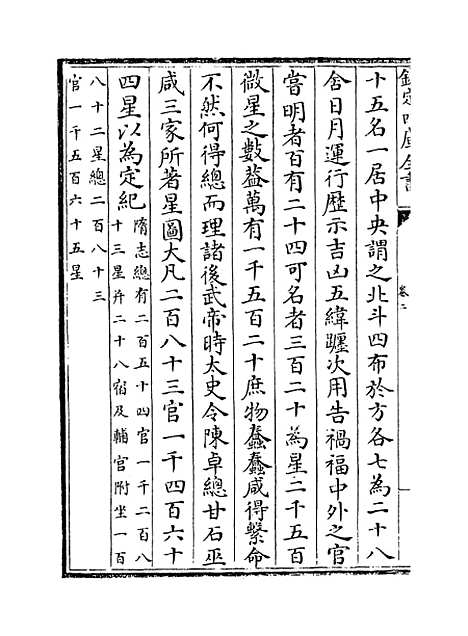 欽定四庫全書
卷二
十五名一居中央謂之北斗四布於方各七為二十八
舍日月運行歴示吉凶五緯躔次用告禍福中外之官
當明者百有二十四可名者三百二十為星二千五百
微星之數葢萬有一千五百二十庶物蠢蠢咸得繫命
不然何得總而理諸後武帝時太史令陳卓總甘石巫
咸三家所著星圖大凡二百八十三官一千四百六十
四星以為定紀
隋志總有二百五十四官一千二百八
十三星并二十八宿及輔官附坐一百
八十二星總二百八十三
官一千五百六十五星